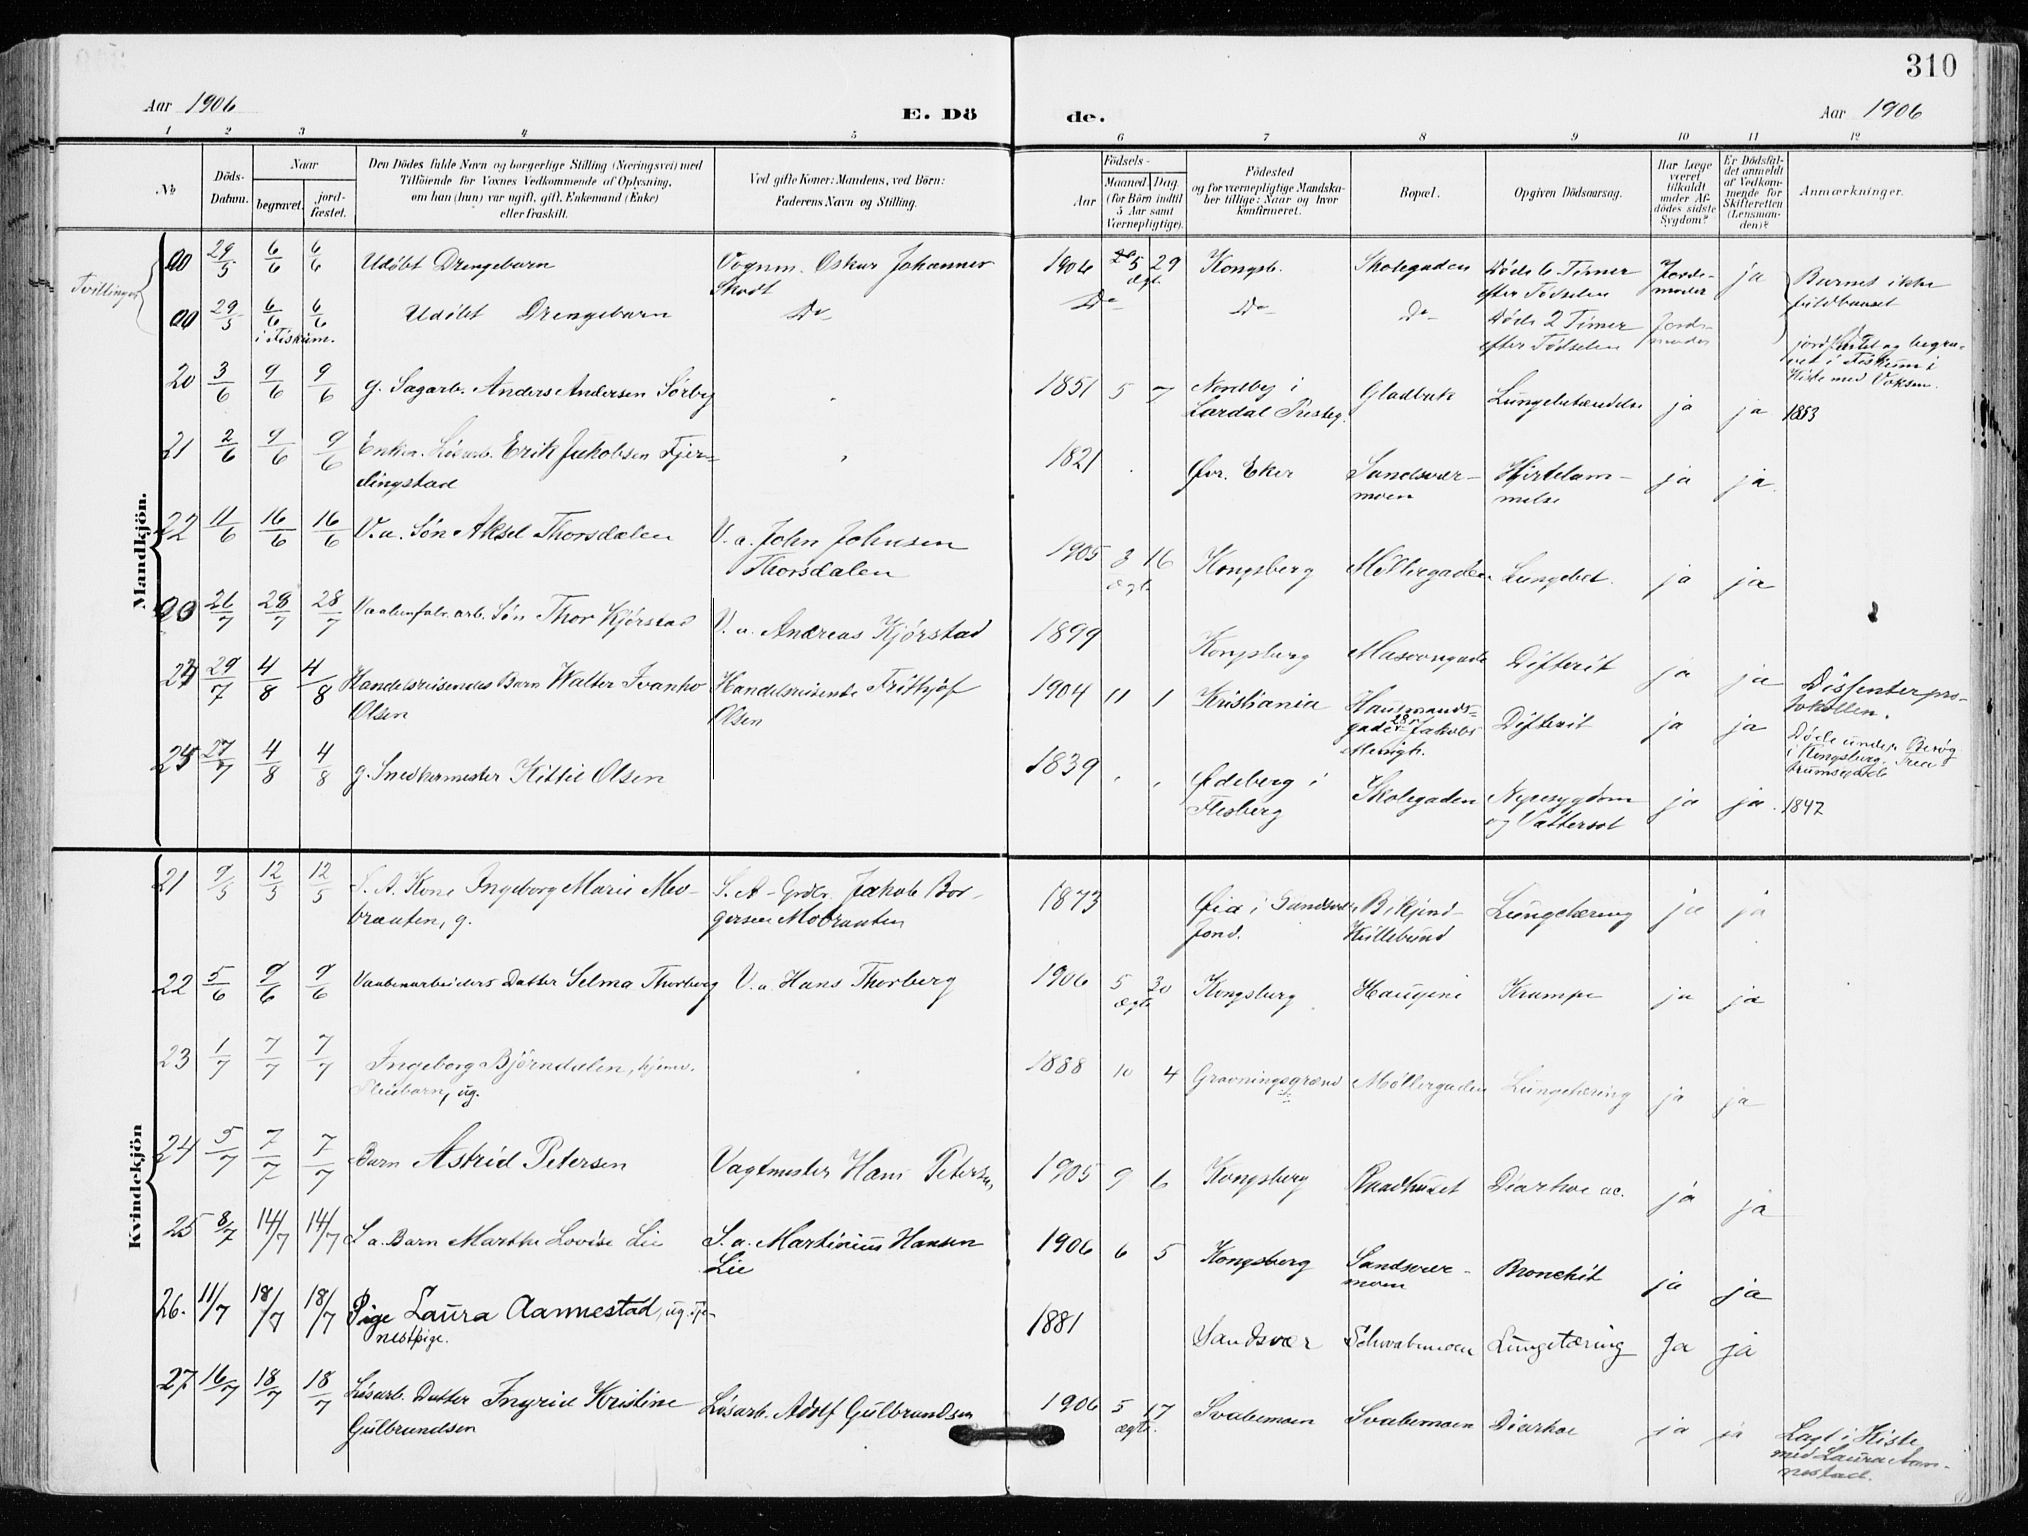 310
Aar 1906
E. Dö
de.
Aar 1906
1 2 3 4 5 6 7 8 9 10 11 12
No
Döds-
Datum.
Naar
begravet.
jord-
fæstet.
Den Dödes fulde Navn og borgerlige Stilling (Næringsvei) med
Tilföiende for Voxnes Vedkommende af Oplysning,
om han (hun) var ugift, gift, Enkemand (Enke)
eller fraskilt.
Ved gifte Koner: Mandens, ved Börn:
Faderens Navn og Stilling.
Födsels-
Aar
Maaned.
Dag.
(for Börn indtil
5 Aar samt
Værnepligtige).
Födested
og for værnepligtige Mandska-
ber tillige: Naar og hvor
konfirmeret.
Bopæl.
Opgiven Dödsaarsag.
Har Læge
været
tilkaldt
under Af-
dödes sidste
Sygdom?
Er Dödsfal-
det anmeldt
af Vedkom-
mende for
Skifteretten
(Lensman-
den)?
Anmærkninger.
Mandkjön.
Tvillinger
00 29/5 6/6 6/6 Udøbt Drengebarn Vognm. Oskar Johannes
Skodt
1906 5 29 Kongsb. Skolegaden Døde 6 Timer
ægt. efter Fødselen
Jorde-
moder
ja
Barnet ikke
fuldbaaret
00 29/5 6/6 6/6 Udøbt Drengebarn Do
i Fiskum.
Do Do Do Døde 2 Timer
efter Fødselen
Jorde-
moder
jordfæstet og begra-
vet i Fiskum i
Kiste med Voksen.
20 3/6 9/6 9/6 g. Sagarb. Anders Andersen Sørby
1851 5 7 Nordby i
Lardal Presteg. Gladbak Lungebetændelse ja ja 1853
21 2/6 9/6 9/6 Enkem. Løsarb. Erik Jakobsen Fjer-
dingstad
1821 Øvr. Eker Sandsvær-
moen Hjertelam-
melse ja ja.
22 11/6 16/6 16/6 V.a. Søn Aksel Thorsdalen V.a. John Johnsen
Thorsdalen
1905 3 16 Kongsberg Møllergaden Lungebet. ja ja
ægte
23 26/7 28/7 28/7 Vaabenfabr.arb. Søn Thor Kjørstad V.a. Andreas Kjørstad
1899 Kongsberg Masovngade Difterit ja ja
24 29/7 4/8 4/8 Handelsreisendes Barn Walter Ivanho
Olsen
Handelsreisende Frithjof
Olsen
1904 11 1 Kristiania Hausmands-
gade 28 Difterit ja ja
Dissenterpro-
tokollen.
Døde under Besøg
i Kongsberg.
25 27/7 4/8 4/8 g. Snedkermester Kittil Olsen
1839 Ødeberg i
Flesberg Skolegaden Nyresygdom
og Vattersot ja ja. 1847
Kvindekjön
21 9/5 12/5 12/5 S.A. Kone Ingeborg Marie Mo-
brauten, g.
S.A - Grdbr. Jakob Bor-
gersen Mobrauten
1873 Øia i Sandsv.
Jond.
Lungetæring ja ja
22 5/6 9/6 9/6 Vaabenarbeiders Datter Selma Thorberg V.a. Hans Thorberg
1906 5 30 Kongsberg Haugene Krampe ja ja
ægte
23 1/7 7/7 7/7 Ingeborg Bjørndalen, hjemv.
Pleiebarn, ug.
1888 10 4 Gravningsgrænd Møllergaden Lungetæring ja ja
24 5/7 7/7 7/7 Barn Astrid Petersen Vagtmester Hans Petersen
1905 9 6 Kongsberg Raadhuset Diarhoe ac. ja ja
25 8/7 14/7 14/7 S.a. Barn Marthe Lovise Lie S.a. Martinius Hansen
Lie
1906 6 5 Kongsberg Sandsvær-
moen Bronchit ja ja
26. 11/7 18/7 18/7 Pige Laura Aannestad, ug. tje-
nestpige.
1881 Sandsvær Schwabemoen Lungetæring Ja ja
27 16/7 18/7 18/7 Løsarb. Datter Ingrid Kristine
Gulbrandsen
Løsarb. Adolf Gulbrandsen
1906 5 17 Svabemoen Svabemoen Diarhoe ja ja
ægte.
Lagt i Kiste
med Laura Aan-
nestad.